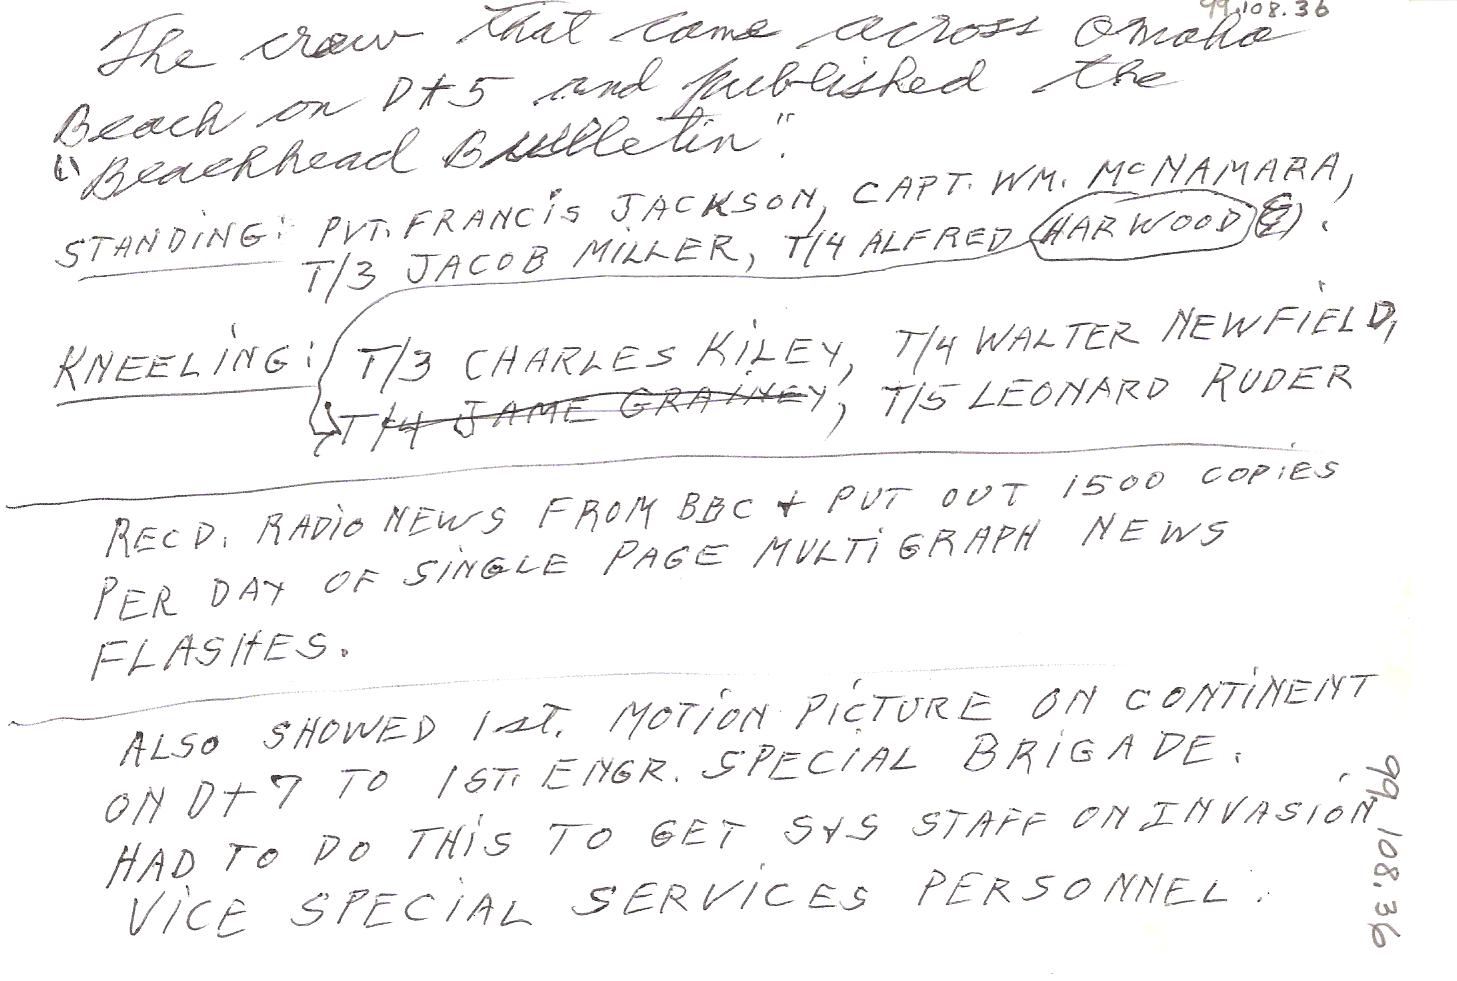 99.108.36
The crew that came across Omaha
Beach on D+5 and published the
"Beachhead Bulletin".
STANDING: PVT. FRANCIS JACKSON, CAPT. WM. McNAMARA,
T/3 JACOB MILLER, T/4 ALFRED HARWOOD ).
KNEELING: T/3 CHARLES KILEY, T/4 WALTER NEWFIELD,
T/4 JAME GRAINEY, T/5 LEONARD RUDER
RECD. RADIO NEWS FROM BBC + PUT OUT 1500 COPIES
PER DAY OF SINGLE PAGE MULTIGRAPH NEWS
FLASHES.
ALSO SHOWED 1ST. MOTION PICTURE ON CONTINENT
ON D+7 TO 1ST. ENGR. SPECIAL BRIGADE.
HAD TO DO THIS TO GET S+S STAFF ON INVASION
VICE SPECIAL SERVICES PERSONNEL.
99.108.36